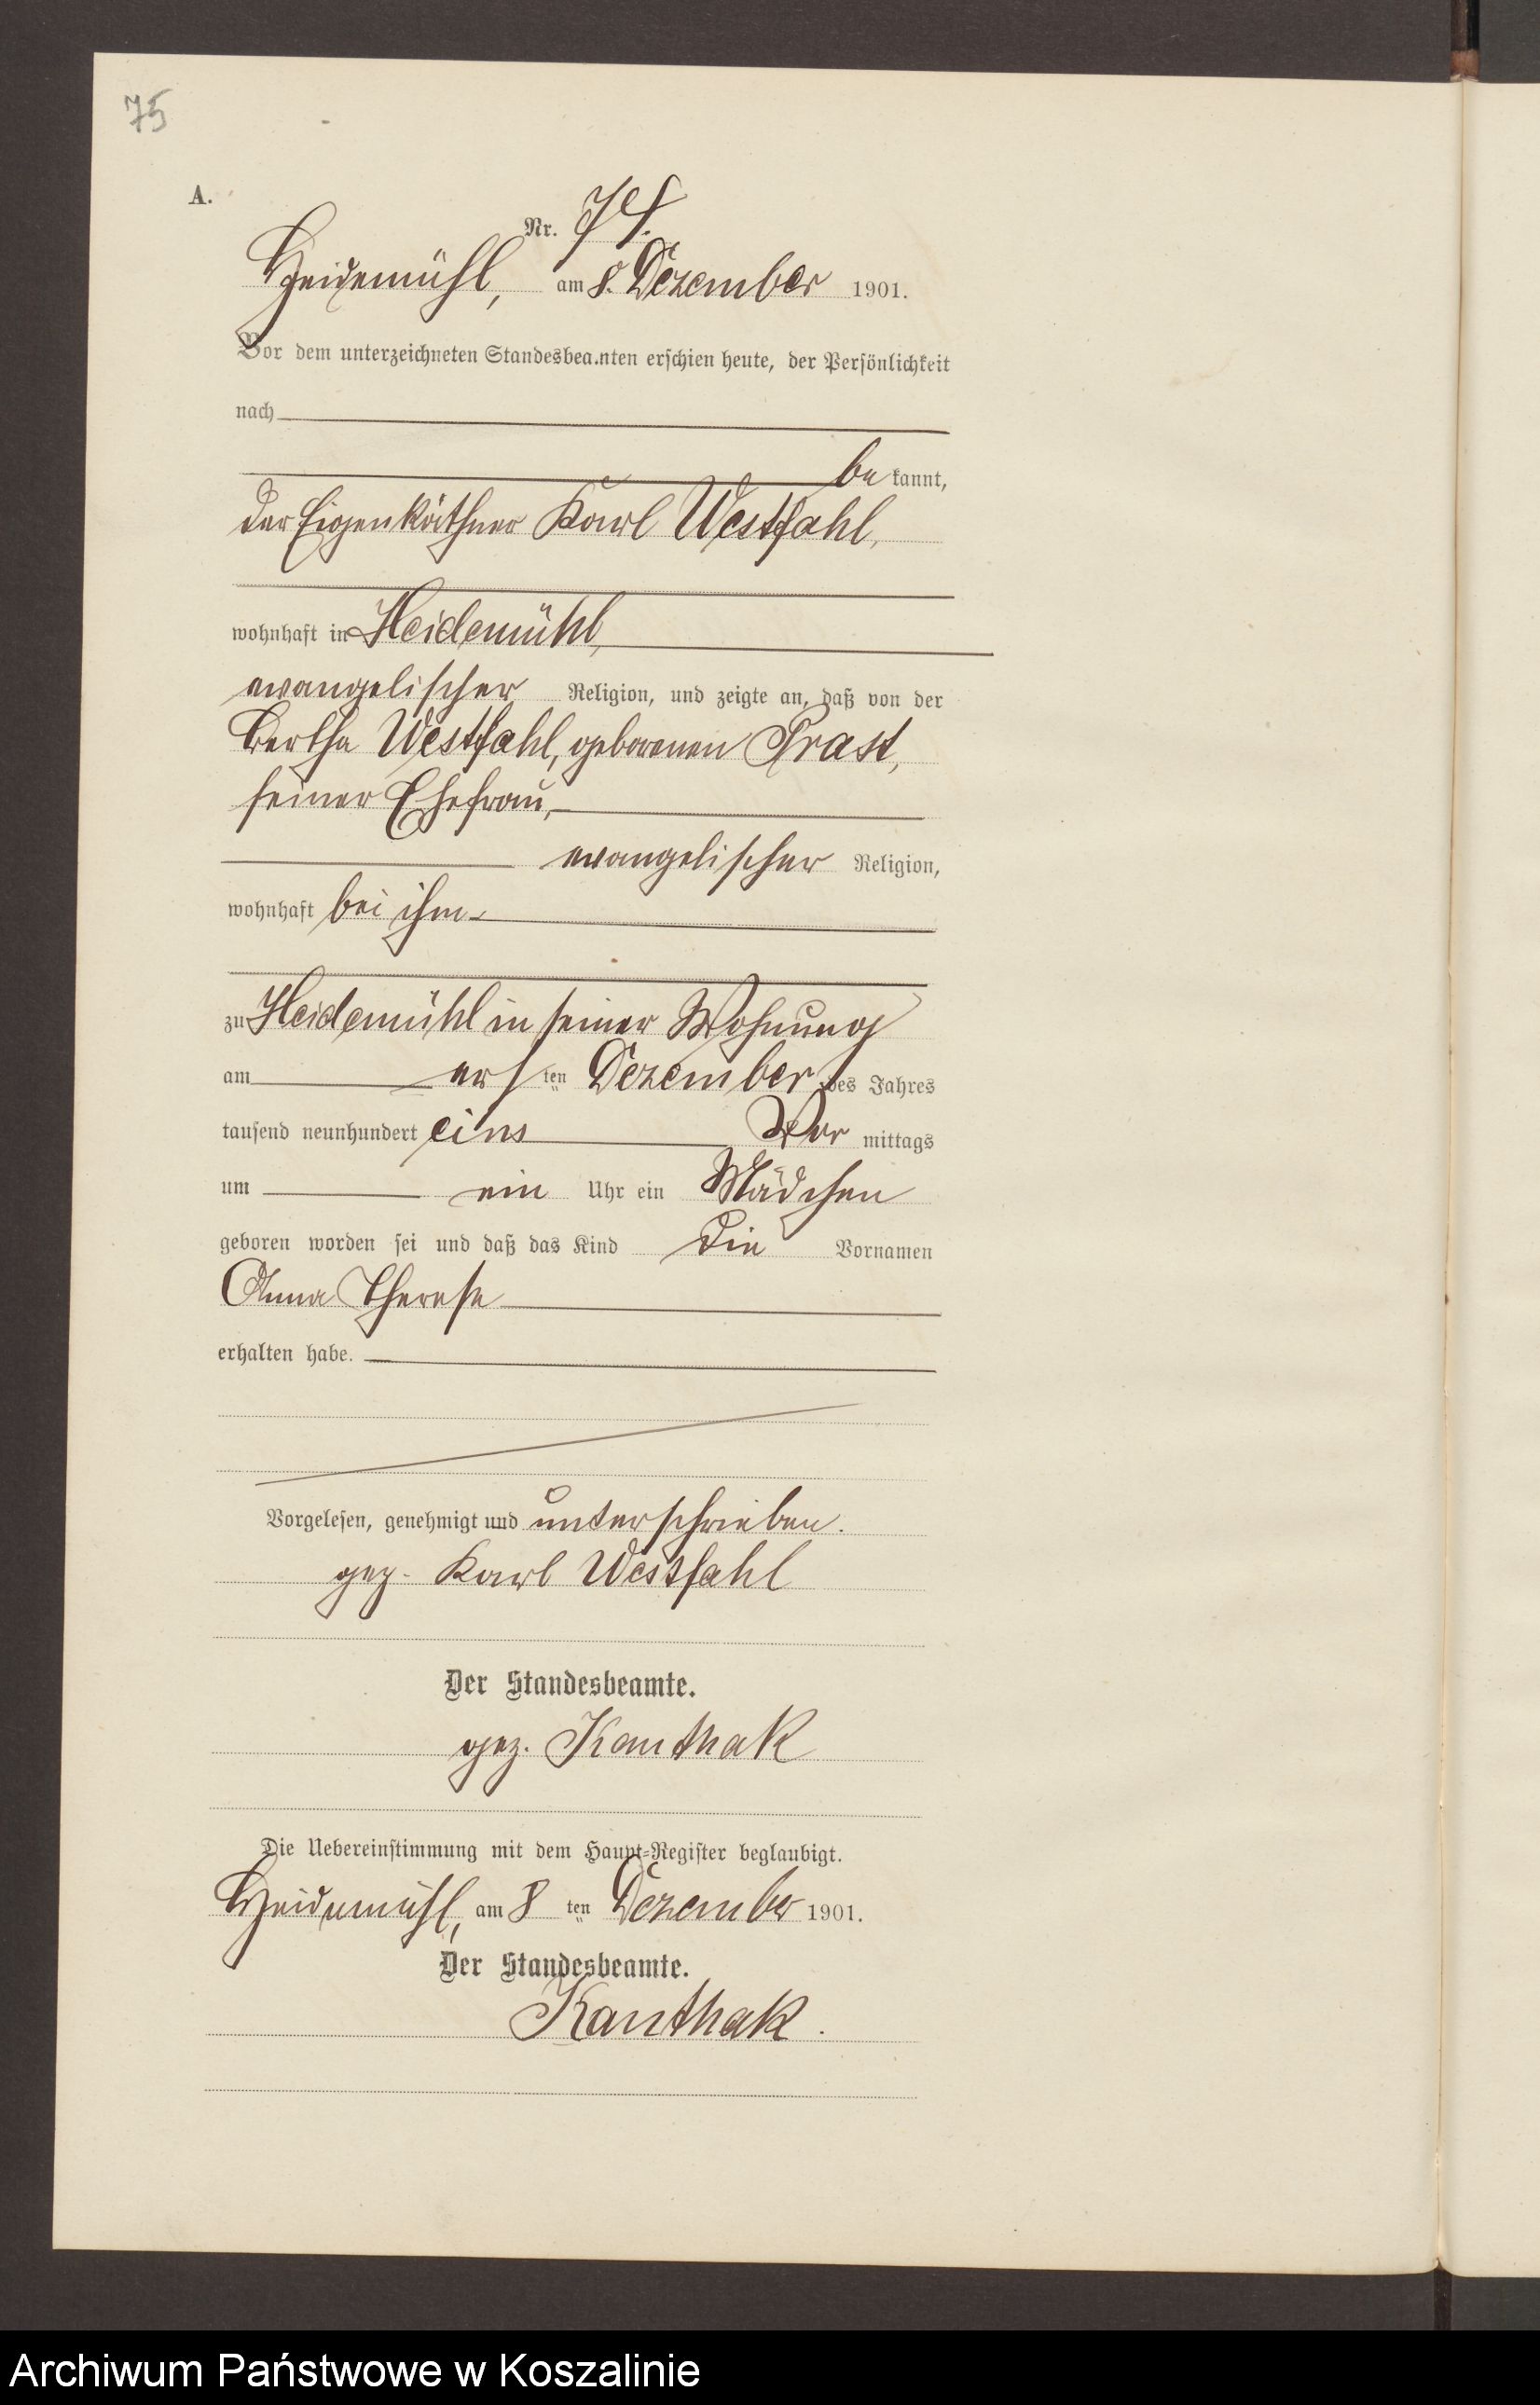 75
A.
Nr. 74.
Heidemühl, am 8. Dezember 1901.
Vor dem unterzeichneten Standesbeamten erschien heute, der Persönlichkeit
nach
be kannt,
der Eigenkäthner Karl Westfahl,
wohnhaft in Heidemühl,
evangelischer Religion, und zeigte an, daß von der
Bertha Westfahl, geborenen Prast,
seiner Ehefrau,
evangelischer Religion,
wohnhaft bei ihm
zu Heidemühl in seiner Wohnung
am ers ten Dezember des Jahres
tausend neunhundert eins Vor mittags
um ein Uhr ein Mädchen
geboren worden sei und daß das Kind die Vornamen
Anna Therese
erhalten habe.
Vorgelesen, genehmigt und unterschrieben.
gez. Karl Westfahl
Der Standesbeamte.
gez. Kanthak
Die Uebereinstimmung mit dem Haupt-Register beglaubigt.
Heidemühl, am 8 ten Dezember 1901.
Der Standesbeamte.
Kanthak.
Archiwum Państwowe w Koszalinie